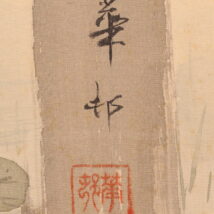 華邨
華邨